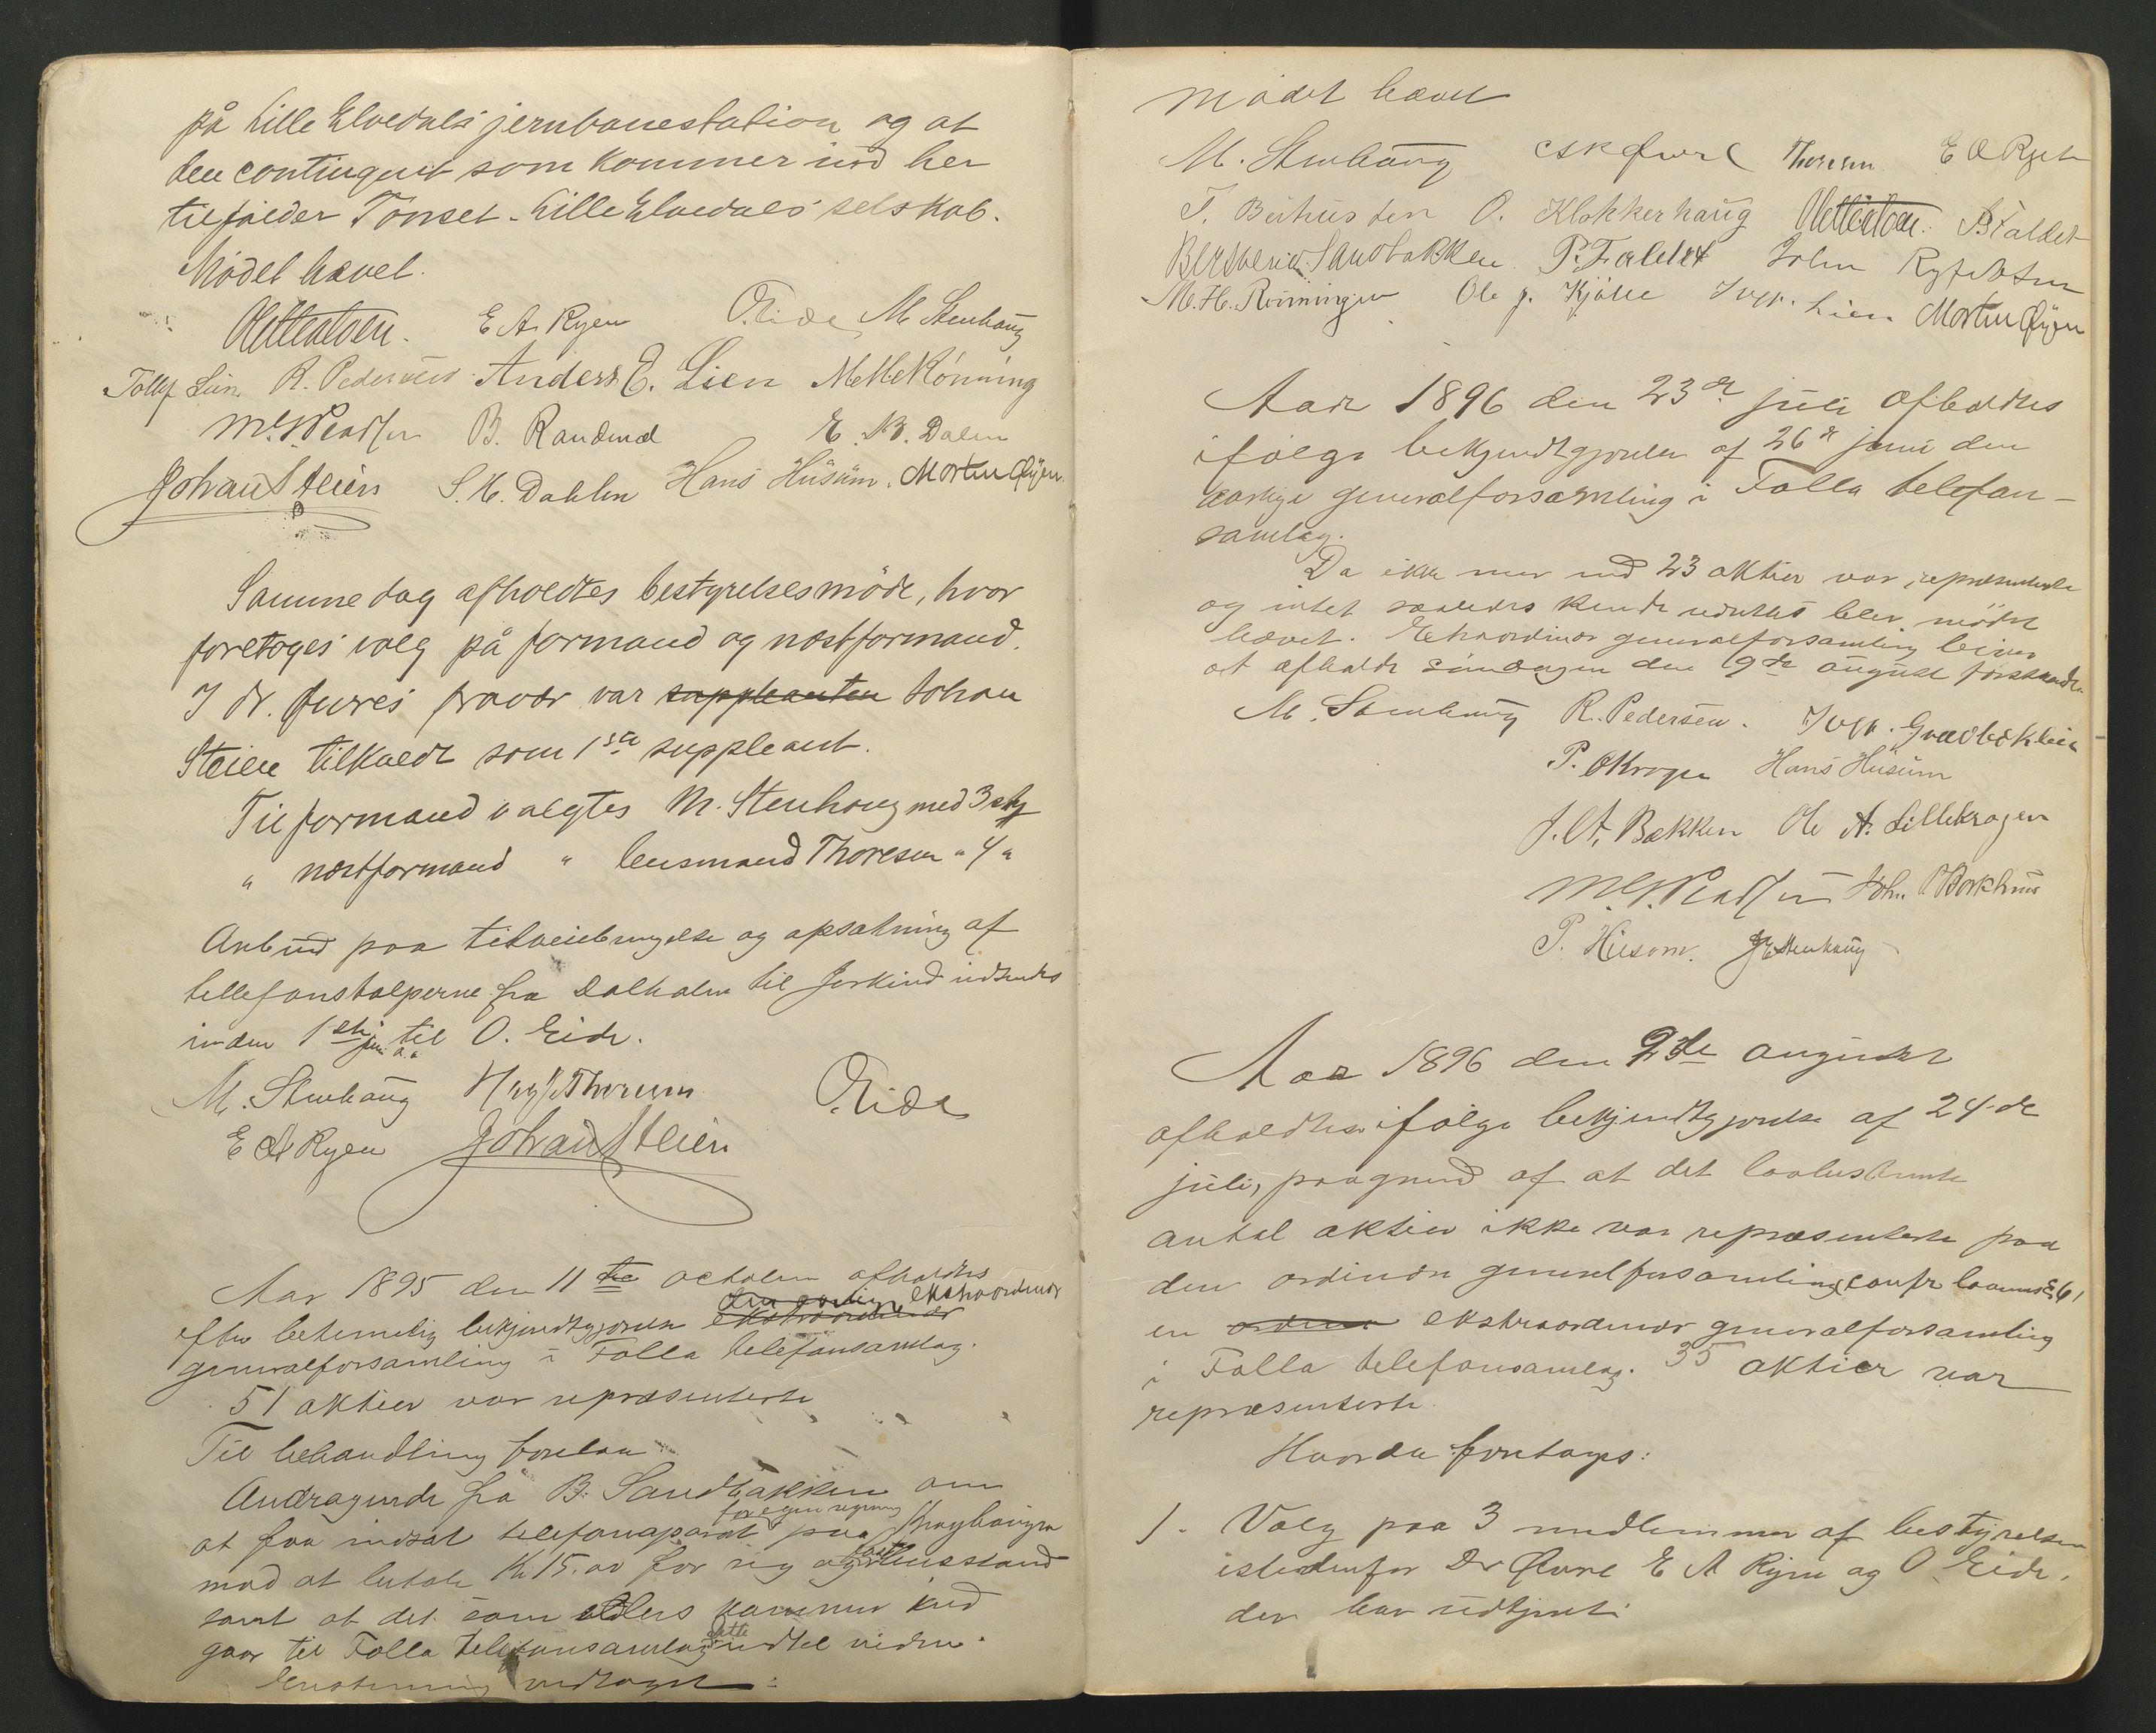 på Lille Elvedals jernbanestation og at
den contingent som kommer ind her
tilfalder Tönset-Lille Elvedals selskab.
Mödet hævet.
E A Ryen O. Eide M Stenhaug
R. Pedersen Anders E. Lien
B. Randmæl E. K. Dalen
Johan Steien S. K. Dahlen Hans Husum. Morten Øyen
Samme dag afholdtes bestyrelsesmöde, hvor
foretoges valg på formand og næstformand.
I dr. Øvres fravær var suppleanten Johan
Steien tilkaldt som 1ste suppleant.
Til formand valgtes M. Stenhaug med 3 st
" næstformand " lensmand Thoresen " 4 "
Anbud paa tilveiebringelse og opsætning af
tellefonstolperne fra Dalholm til Jerkind indsendes
inden 1ste jan. til O. Eide.
M. Stenhaug Thoresen O. Eide
E A Ryen Johan Steien
Aar 1895 den 11te october afholdtes
efter betimelig bekjendtgjörelse den aarlige ekstraordinær ekstraordinær
generalforsamling i Folla telefonsamlag.
51 aktier var repræsenterte
Til behandling forelaa
Andragende fra B. Sandbakken om
at faa indsat telefonaparat for egen regning paa
mod at betale Kr 15.00 for sig og husstand
samt at det som ellers kommer ind
gaar til Folla telefonsamlag indtil videre.
Enstemmig vedtaget:
Mödet hævet
M. Stenhaug Thoresen E A Ryen
T. Bekhusden O. Klokkerhaug
Sandbakken P. Faldet John
M. H. Rönningen Ole J. Kjölle Lien Morten Øyen
Aar 1896 den 23de juli afholdtes
ifölge bekjendtgjörelse af 26de juni den
aarlige generalforsamling i Folla telefon-
samlag.
Da ikke mer end 23 aktier var repræsenterte
og intet saaledes kunde vedtages blev mödet
hævet. Ekstraordinær generalforsamling
at afholde söndagen den 9de august förstkommende.
M. Stenhaug R. Pedersen.
P. O Krogen Hans Husum
J. A. Bakken Ole A. Lillekrogen
John
P. Husom. J E Stenhaug
Aar 1896 den 9de august
afholdtes ifölge bekjendtgjörelse af 24-de
juli, paagrund af at det lovbestemte
antal aktier ikke var repræsenterte paa
den ordinære generalforsamling, confr lovenes § 6,
en ekstraordinær generalforsamling
i Folla telefonsamlag. 35 aktier var
repræsenterte.
Hvorda foretoges:
1. Valg paa 3 medlemmer af bestyrelsen
istedenfor Dr Øvre E A Ryen og O Eide,
der har udtjent.